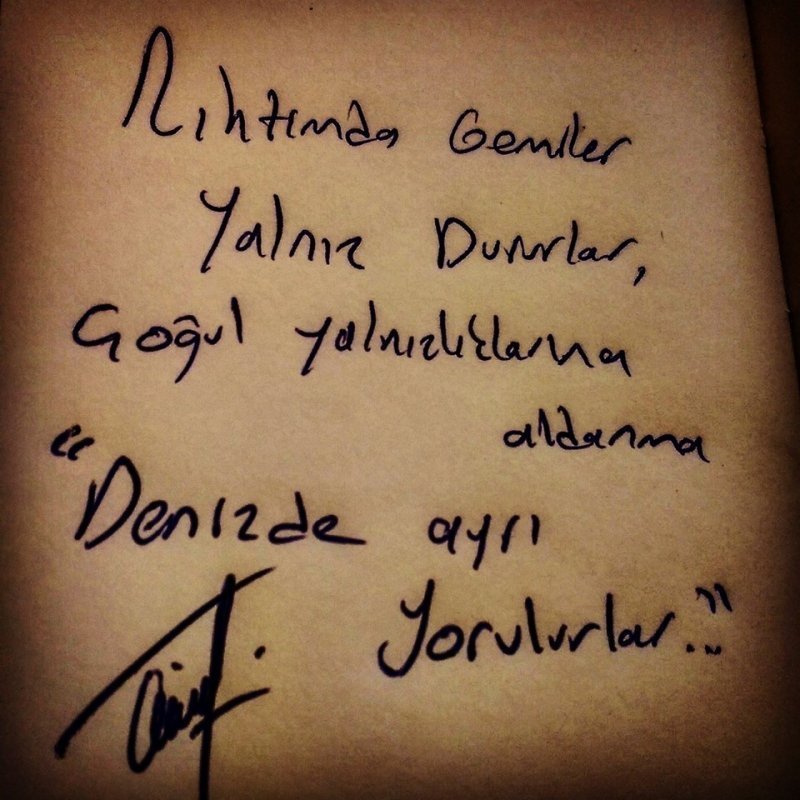 Rıhtımda Gemiler
Yalnız Dururlar,
Çoğul yalnızlıklarına
aldanma
"Denizde ayrı
Yorulurlar..."